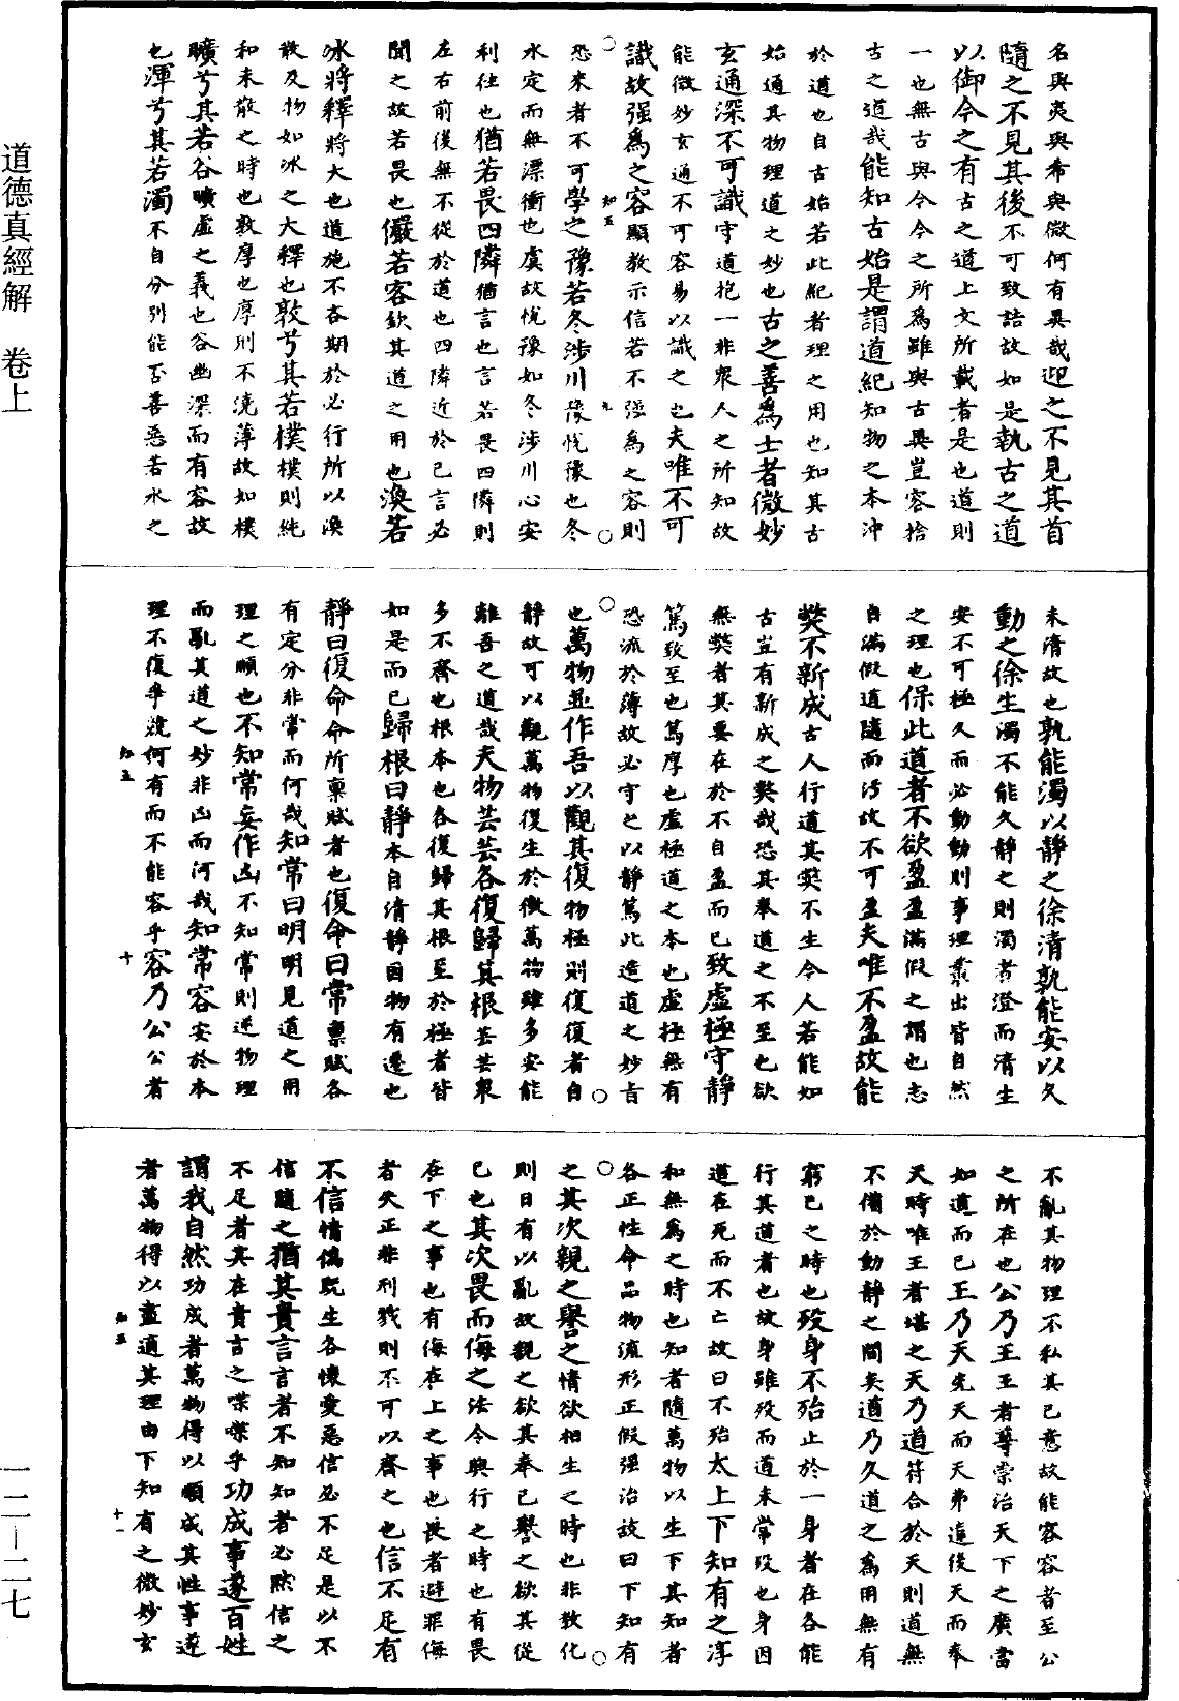 名與夷與希與微何有異哉迎之不見其首
隨之不見其後不可致詰故如是執古之道
以御今之有古之道上文所載者是也道則
一也無古與今今之所爲雖與古異豈容捨
古之道哉能知古始是謂道紀知物之本沖
於道也自古始若此紀者理之用也知其古
始通其物理道之妙也古之善爲士者微妙
玄通深不可識守道抱一非衆人之所知故
能微妙玄通不可容易以識之也夫唯不可
識故强爲之容顯教示信若不强爲之容則
知五
九
恐來者不可學之豫若冬涉川豫悦豫也冬
水定而無漂衝也虞故悦豫如冬涉川心安
利往也猶若畏四隣猶言也言若畏四隣則
左右前後無不從於道也四隣近於己言必
聞之故若畏也儼若客欽其道之用也渙若
冰將釋將大也道施不吝期於必行所以渙
散及物如冰之大釋也敦兮其若樸樸則純
和未散之時也敦厚也厚則不澆薄故如樸
曠兮其若谷曠虛之義也谷幽深而有容故
也渾兮其若濁不自分別能否善惡若水之
未清故也孰能濁以靜之徐清孰能安以久
動之徐生濁不能久靜之則濁者澄而清生
安不可極久而必動動則事理叢出皆自然
之理也保此道者不欲盈盈滿假之謂也志
自滿假道隨而汚故不可盈夫唯不盈故能
弊不新成古人行道其弊不生今人若能如
古豈有新成之弊哉恐其奉道之不至也欲
無弊者其要在於不自盈而已致虛極守靜
篤致至也篤厚也虛極道之本也虛極無有
恐流於薄故必守之以靜篤此造道之妙旨
也萬物並作吾以觀其復物極則復復者自
靜故可以觀萬物復生於微萬物雖多安能
離吾之道哉夫物芸芸各復歸其根芸芸衆
多不齊也根本也各復歸其根至於極者皆
如是而已歸根曰靜本自清靜因物有遷也
靜曰復命命所稟賦者也復命曰常稟賦各
有定分非常而何哉知常曰明明見道之用
理之順也不知常妄作凶不知常則逆物理
而亂其道之妙非凶而何哉知常容安於本
理不復爭競何有而不能容乎容乃公公者
知五
十
不亂其物理不私其己意故能容容者至公
之所在也公乃王王者尊崇治天下之廣當
如道而已王乃天先天而天弗違後天而奉
天時唯王者堪之天乃道符合於天則道無
不備於動靜之間矣道乃久道之爲用無有
窮已之時也歿身不殆止於一身者在各能
行其道者也故身雖歿而道未常歿也身因
道在死而不亡故曰不殆太上下知有之淳
和無爲之時也知者隨萬物以生下其知者
各正性命品物流形正假强治故曰下知有
之其次親之譽之情欲相生之時也非教化
則日有以亂故親之欲其奉己譽之欲其從
己也其次畏而侮之法令興行之時也有畏
在下之事也有侮在上之事也畏者避罪侮
者失正非刑戮則不可以齊之也信不足有
不信情僞既生各懷愛惡信必不足是以不
信隨之猶其貴言言者不知知者必默信之
不足者其在貴言之喋喋乎功成事遂百姓
謂我自然功成者萬物得以順成其性事遂
者萬物得以盡適其理由下知有之微妙玄
知五
十一
道德真經解 卷上
一二—二七